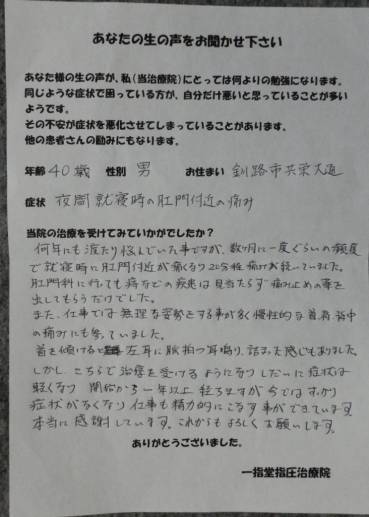 あなたの生の声をお聞かせ下さい
あなた様の生の声が、私(当治療院)にとっては何よりの勉強になります。
同じような症状で困っている方が、自分だけ悪いと思っていることが多い
ようです。
その不安が症状を悪化させてしまっていることがあります。
他の患者さんの励みにもなります。
年齢 40歳 性別 男 お住まい 釧路市共栄大通
症状 夜間就寝時の肛門付近の痛み
当院の治療を受けてみていかがでしたか?
何年にも渡たり悩んでいた事ですが、数ヶ月に一度ぐらいの頻度
で就寝時に肛門付近が痛くなり20分程痛みが続いていました。
肛門科に行っても痔などの疾患は見当たらず痛み止めの薬を
出してもらうだけでした。
また、仕事では無理な姿勢をする事が多く慢性的な首、肩、背中
の痛みにも参っていました。
首を傾けると左耳に脈拍つ耳鳴り、詰まった感じもありました。
しかし、こちらで治療を受けるようになりしだいに症状は
軽くなり 開始から一年以上経ちますが今ではすっかり
症状がなくなり仕事も精力的にこなす事ができています。
本当に感謝しています。これからもよろしくお願いします。
ありがとうございました。
一指堂指圧治療院